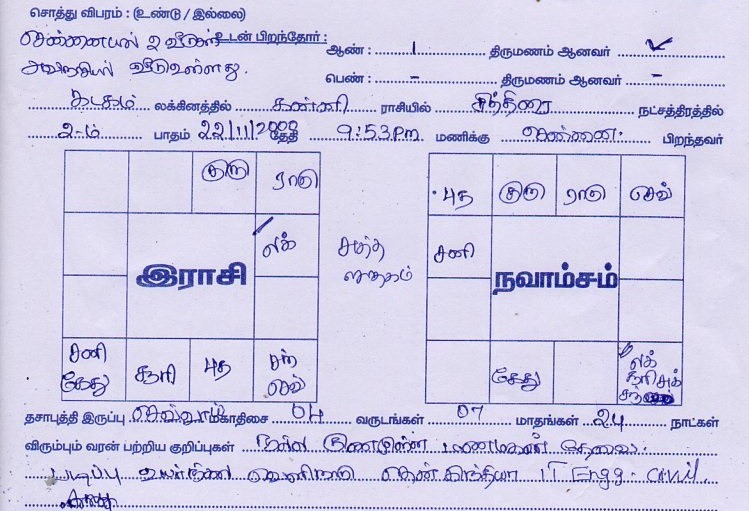 சொத்து விபரம் : (உண்டு / இல்லை)
சென்னையில் 2 வீடுகள் உடன் பிறந்தோர் : ஆண் : 1 திருமணம் ஆனவர் ✓
வீடு உள்ளது. பெண் : - திருமணம் ஆனவர் -
கடகம் லக்கினத்தில் கன்னி ராசியில் சித்திரை நட்சத்திரத்தில்
2-ம் பாதம் 22/11/ தேதி 9:53 Pm மணிக்கு சென்னை பிறந்தவர்
குரு ராகு
புத குரு ராகு செவ்
லக்
சனி
சுத்த ஜாதகம்
இராசி
நவாம்சம்
சனி கேது
சூரி
புத
சந் செவ்
கேது
லக் சூரி சுக்
தசாபுத்தி இருப்பு செவ்வாய் மகாதிசை 04 வருடங்கள் 07 மாதங்கள் 24 நாட்கள்
விரும்பும் வரன் பற்றிய குறிப்புகள் நல்ல குணமுள்ள மணமகன் தேவை.
படிப்பு IT Engg. civil